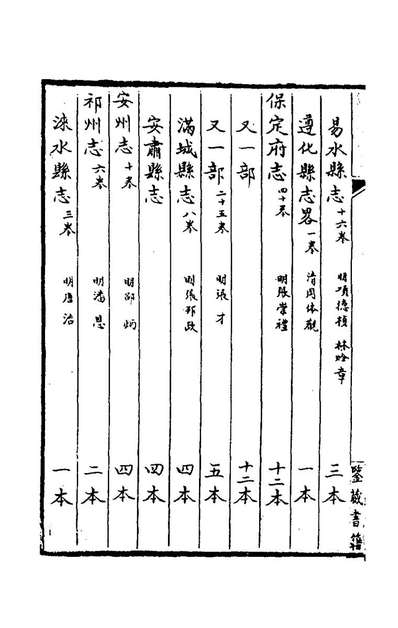 易水縣志十六卷 明 項德楨 林焓章 三本
遵化縣志畧一卷 清周体觀 一本
保定府志四十卷 明張崇禮 十二本
又一部 十二本
又一部二十五卷 明張才 五本
滿城縣志八卷 明張邦政 四本
安肅縣志 四本
安州志十卷 明邵炳 四本
祁州志六卷 明潘恩 二本
淶水縣志三卷 明唐治 一本
鑒藏書籍